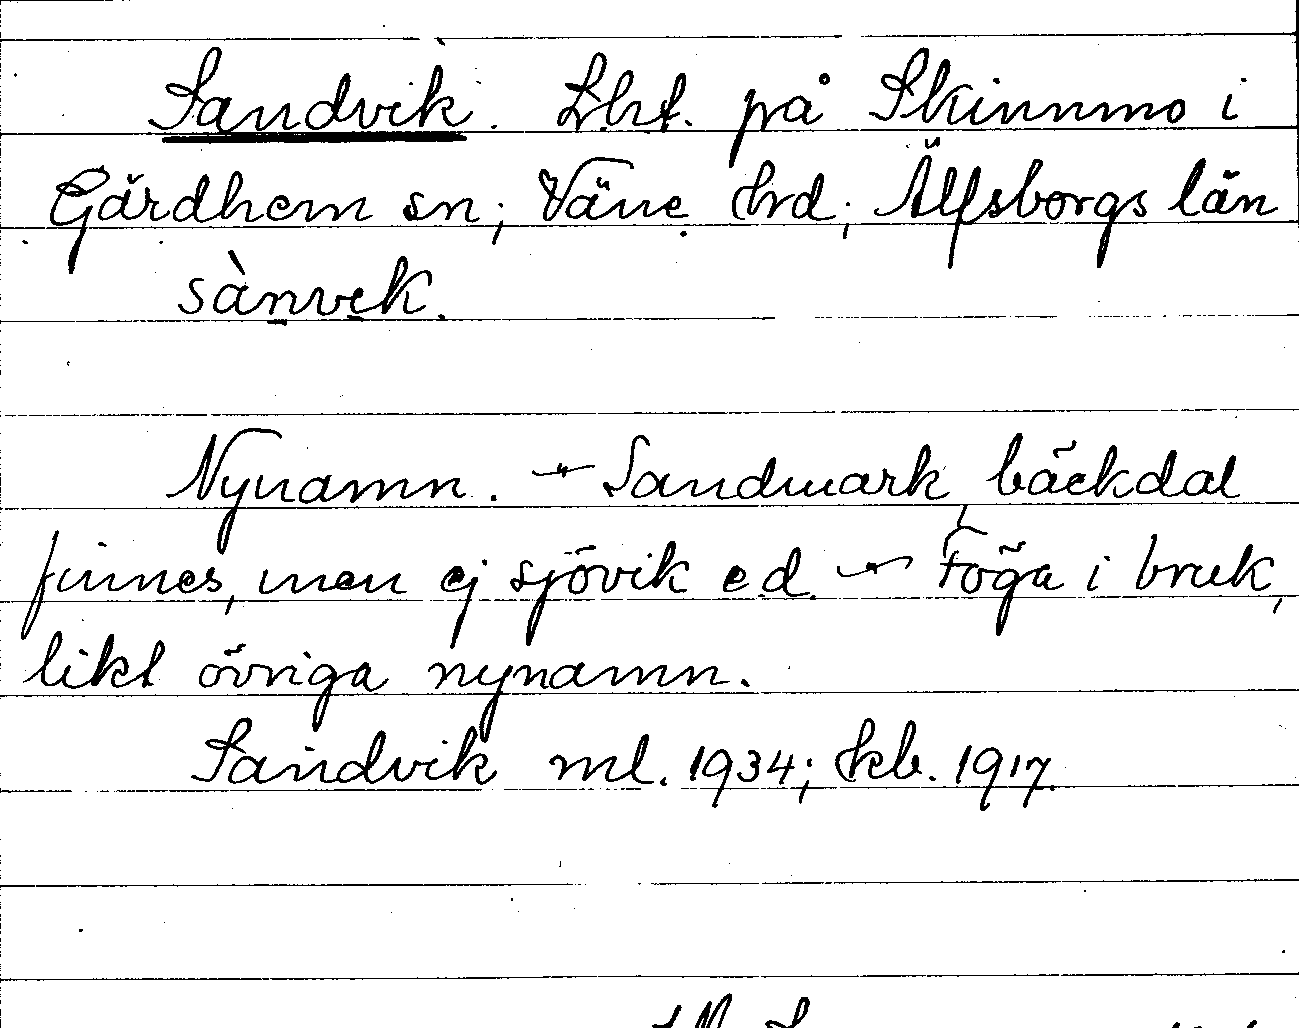 Sandvik. Lht. på Skinnmo i
Gärdhem sn; Väne hrd; Älfsborgs län
sànvek.
Nynamn. — Sandmark, bäckdal
finnes, men ej sjövik e.d. — Föga i bruk,
likt övriga nynamn.
Sandvik ml. 1934; kb. 1917.